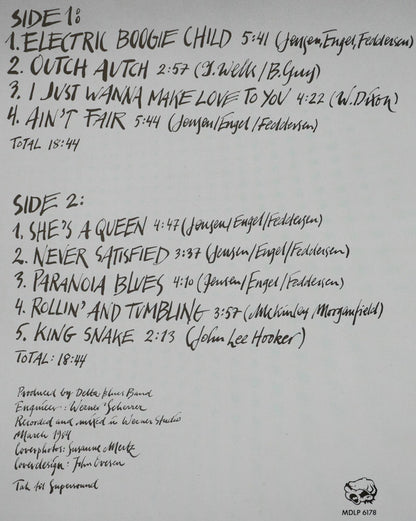 SIDE 1:
1. ELECTRIC BOOGIE CHILD 5:41 (Jensen, Engel, Feddersen)
2. OUTCH AUTCH 2:57 (J. Wells / B. Guy)
3. I JUST WANNA MAKE LOVE TO YOU 4:22 (W. Dixon)
4. AIN'T FAIR 5:44 (Jensen/Engel/Feddersen)
TOTAL 18:44
SIDE 2:
1. SHE'S A QUEEN 4:47 (Jensen/Engel/Feddersen)
2. NEVER SATISFIED 3:37 (Jensen/Engel/Feddersen)
3. PARANOIA BLUES 4:10 (Jensen/Engel/Feddersen)
4. ROLLIN' AND TUMBLING 3:57 (McKinley Morganfield)
5. KING SNAKE 2:13 (John Lee Hooker)
TOTAL: 18:44
Produced by Delta Blues Band
Engineer: Werner Scherrer
Recorded and mixed in Werner Studio
March 1984
Coverphotos: Susanne Mertz
Coverdesign: John Ovesen
Tak til Supersound
MDLP 6178